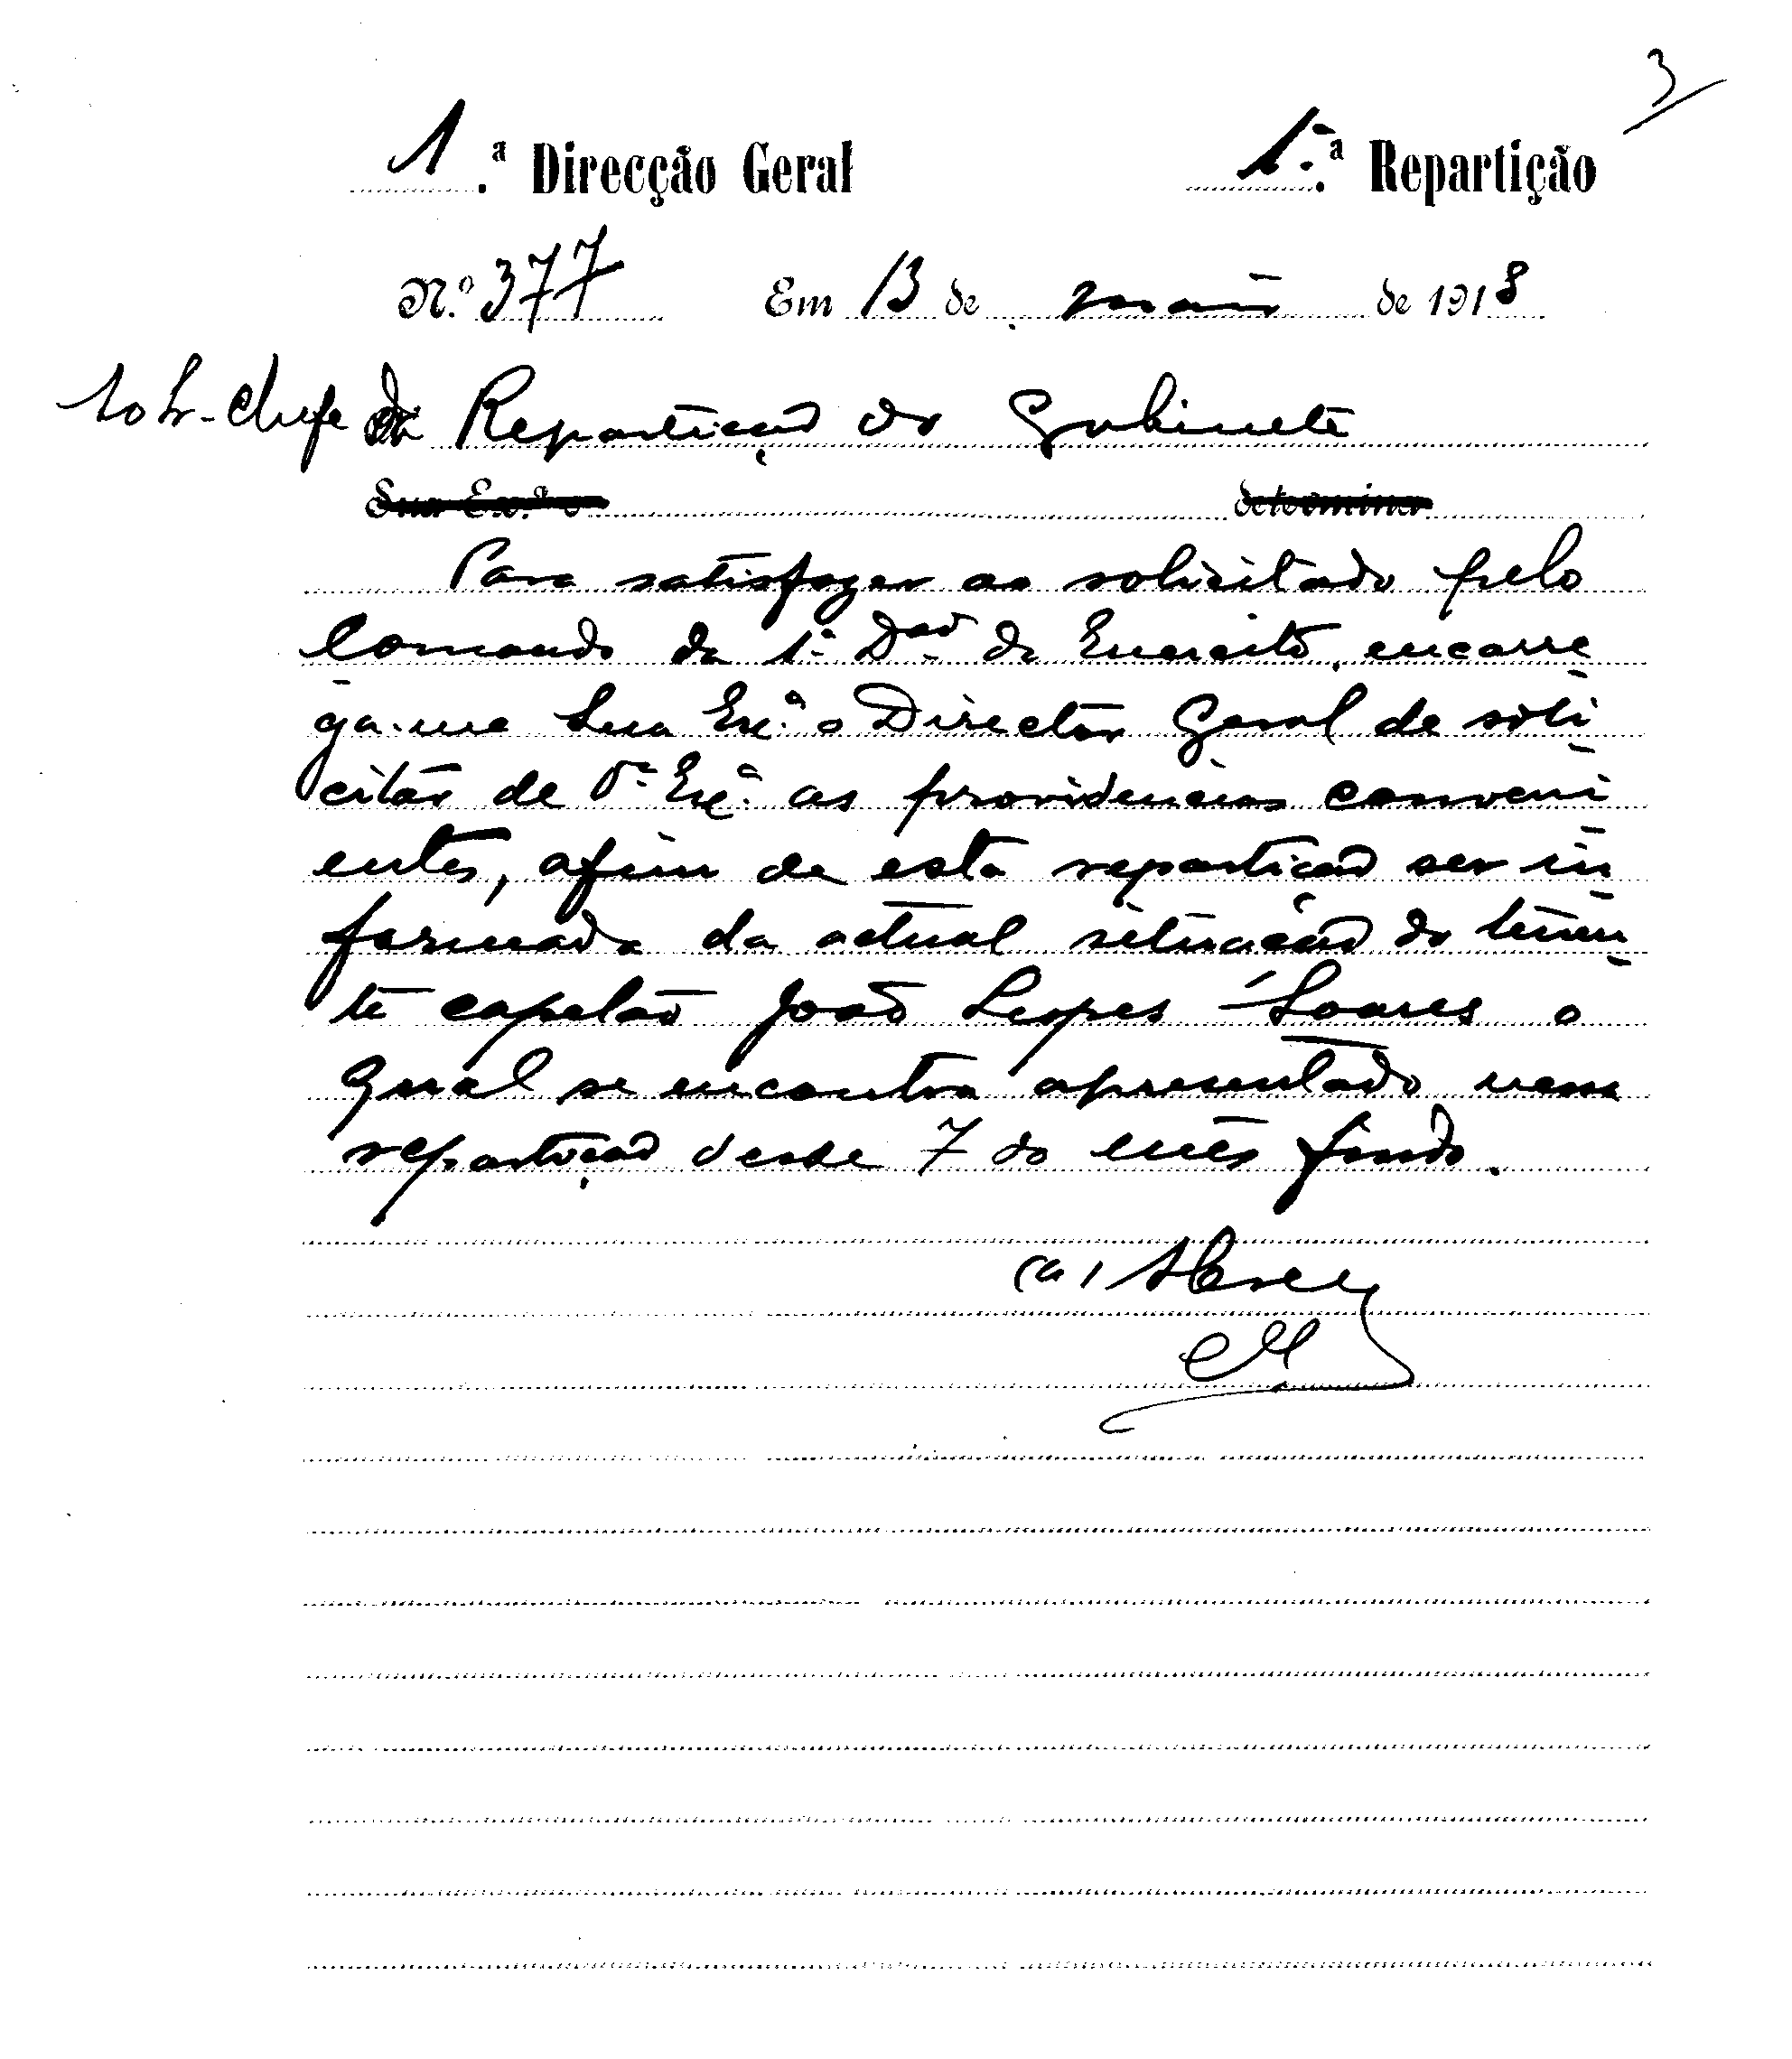 3
1.ª Direcção Geral 1.ª Repartição
N.º 377 Em 13 de maio de 1918
Ao Sr. Chefe da Repartição do Gabinete
Sua Ex.ª o determina
Para satisfazer ao solicitado pelo
Comando da 1.ª D.ão do Exercito, encarre
ga-me Sua Ex.ª o Director Geral de soli
citar de V.ª Ex.ª as providencias conveni
entes, afim de esta repartição ser in
formada da actual situação do tenen
te capelão João Lopes Soares o
qual se encontra apresentado nessa
repartição desde 7 do mês findo.
(a) Abreu